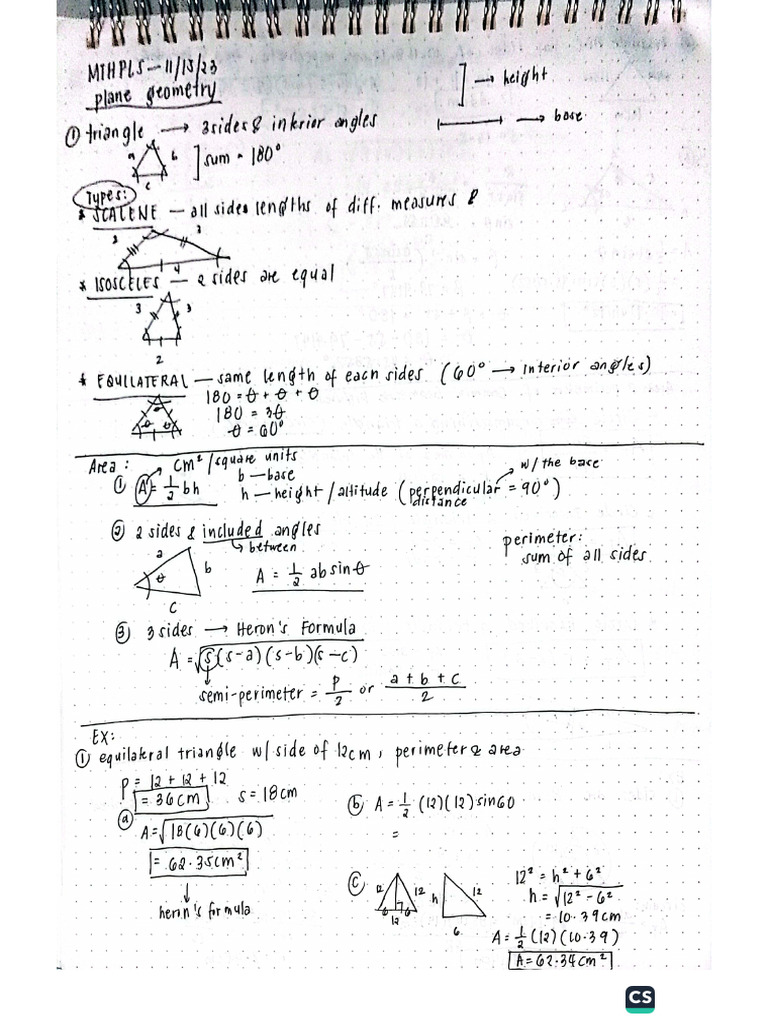 MTHPLS — 11/13/23
plane geometry
] → height
|—| → base
① triangle → 3 sides & interior angles
a b c ] sum = 180°
Types:
* SCALENE — all sides lengths of diff. measures &
2 3 4
* ISOSCELES — 2 sides are equal
3 3
2
* EQUILATERAL — same length of each sides (60° → interior angles)
180 = θ + θ + θ
180 = 3θ
θ = 60°
θ θ θ
Area: cm² / square units
① A = 1/2 bh
b — base
h — height / altitude (perpendicular distance = 90°)
w/ the base
② 2 sides & included angles
↳ between
a θ b c
A = 1/2 ab sin θ
perimeter:
sum of all sides
③ 3 sides → Heron's Formula
A = √s(s-a)(s-b)(s-c)
semi-perimeter = P/2 or a+b+c/2
EX:
① equilateral triangle w/ side of 12cm, perimeter & area
P = 12 + 12 + 12
= 36cm s = 18cm
ⓐ A = √18(6)(6)(6)
= 62.35cm²
↓
heron's formula
ⓑ A = 1/2 (12)(12) sin60
=
ⓒ 12 12 6 6 12
h 12 6
12² = h² + 6²
h = √12² - 6²
= 10.39cm
A = 1/2 (12)(10.39)
A = 62.34cm²
CS